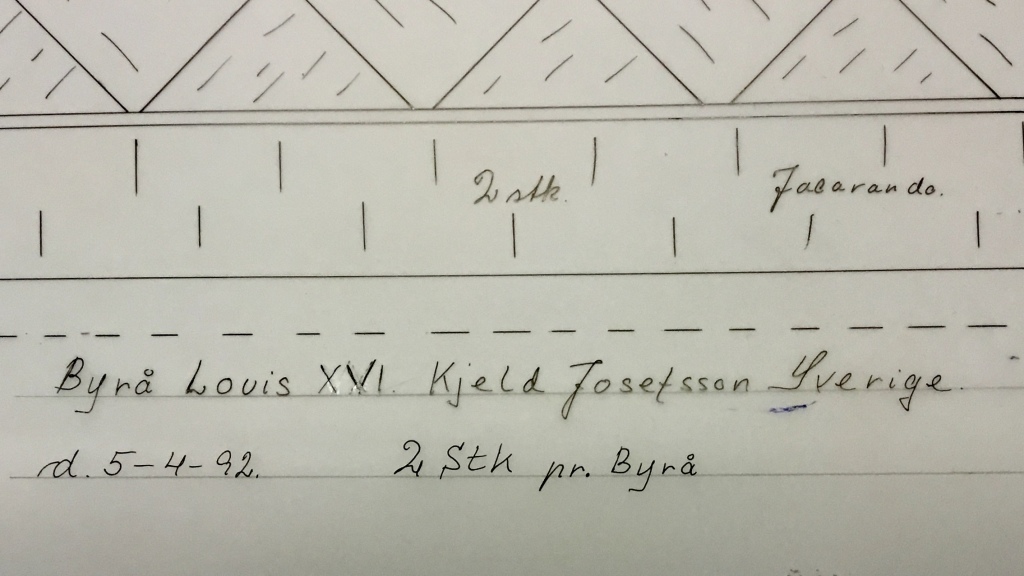 2 stk. Jacaranda.
Byrå Louis XVI. Kjeld Josefsson Sverige.
d. 5-4-92. 2 Stk pr. Byrå